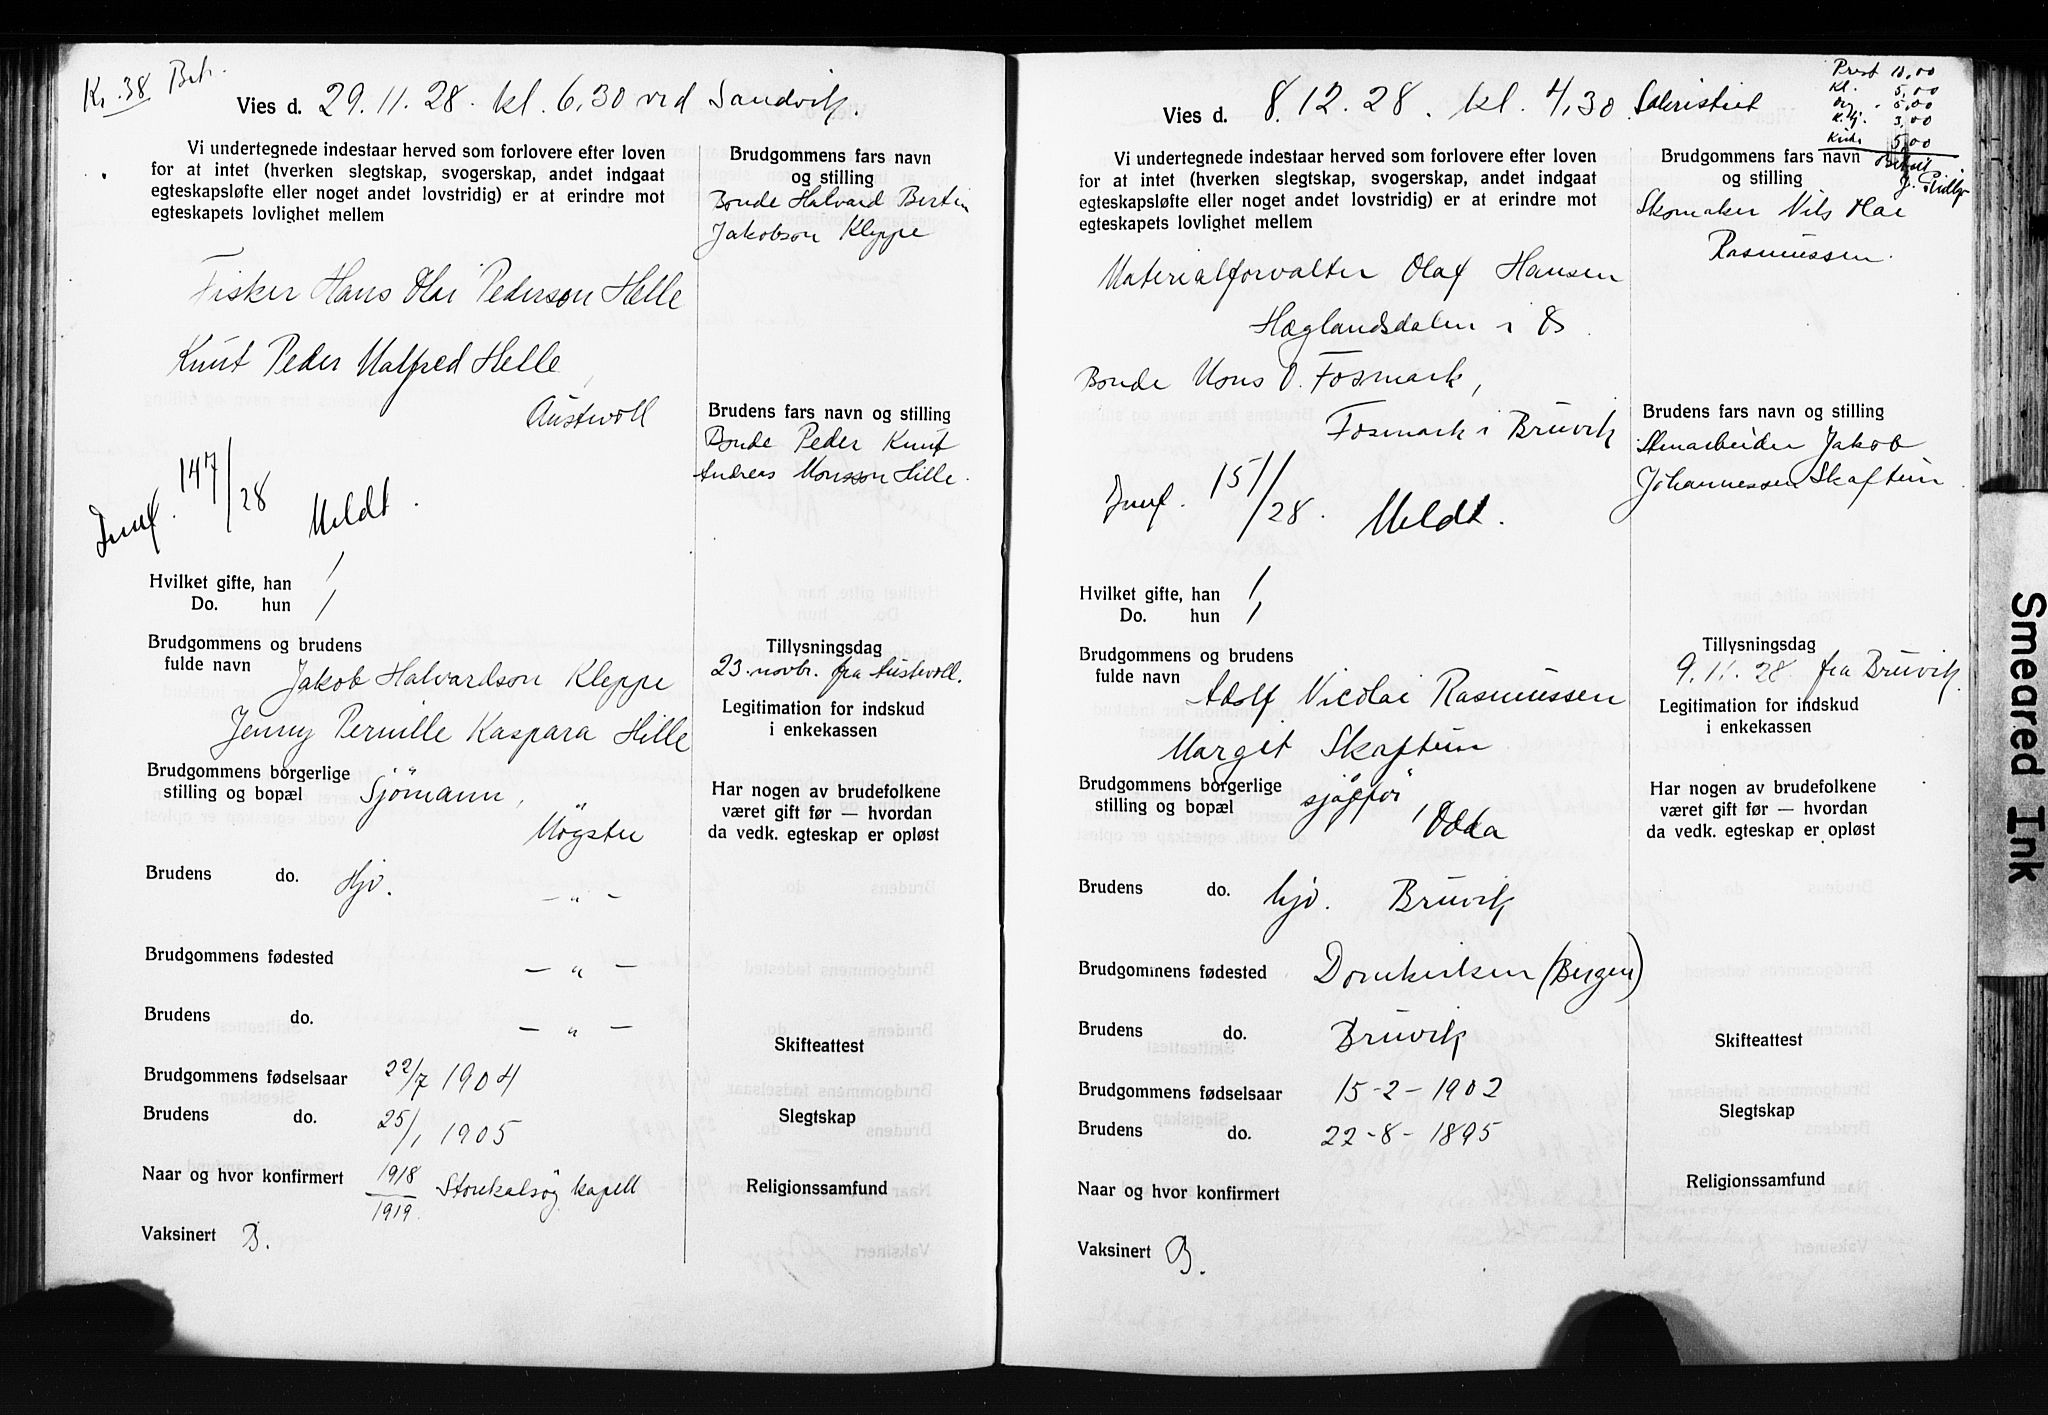 Kr. 38 Bet.
Vies d. 29.11.28. kl. 6,30 ved Sandvik.
Vi undertegnede indestaar herved som forlovere efter loven
for at intet (hverken slegtskap, svogerskap, andet indgaat
egteskapsløfte eller noget andet lovstridig) er at erindre mot
egteskapets lovlighet mellem
Brudgommens fars navn
og stilling
Bonde Halvard Bertin
Jakobson Kleppe
Fisker Hans Olai Pederson Helle
Knut Peder Malfred Helle,
Austevoll
Brudens fars navn og stilling
Bonde Peder Knut
Andreas Monsson Hille.
Innf. 147/28 Meldt.
Hvilket gifte, han 1
Do. hun 1
Brudgommens og brudens
fulde navn
Jakob Halvardson Kleppe
Jenny Pernille Kaspara Hille
Tillysningsdag
23. novbr. fra Austevoll.
Legitimation for indskud
i enkekassen
Brudgommens borgerlige
stilling og bopæl
Sjömann,
Møgster
Har nogen av brudefolkene
været gift før — hvordan
da vedk. egteskap er opløst
Brudens do. Hjv. — " —
Brudgommens fødested — " —
Brudens do. — " —
Skifteattest
Brudgommens fødselsaar 22/7 1904
Brudens do. 25/1 1905
Slegtskap
Naar og hvor konfirmert 1918/1919. Storekalsøy kapell
Religionssamfund
Vaksinert B.
Prest 10,00
Kl. 5,00
Org. 5,00
K.tj. 3,00
Kirke 5,00
Betalt
Vies d. 8.12.28. kl. 4,30. Sakristiet
Vi undertegnede indestaar herved som forlovere efter loven
for at intet (hverken slegtskap, svogerskap, andet indgaat
egteskapsløfte eller noget andet lovstridig) er at erindre mot
egteskapets lovlighet mellem
Brudgommens fars navn
og stilling
Skomaker Nils Olai
Rasmussen.
Materialforvalter Olaf Hansen
Hæglandsdalen i Os.
Bonde Mons O. Fosmark,
Fosmark i Bruvik
Brudens fars navn og stilling
Stenarbeider Jakob
Johannessen Skaftun.
Innf. 151/28. Meldt.
Hvilket gifte, han 1
Do. hun 1
Brudgommens og brudens
fulde navn
Adolf Nicolai Rasmussen
Marget Skaftun
Tillysningsdag
9.11.28 fra Bruvik.
Legitimation for indskud
i enkekassen
Brudgommens borgerlige
stilling og bopæl
sjåfør, Odda
Har nogen av brudefolkene
været gift før — hvordan
da vedk. egteskap er opløst
Brudens do. hjv. Bruvik
Brudgommens fødested Domkirken (Bergen)
Brudens do. Bruvik
Skifteattest
Brudgommens fødselsaar 15-2-1902
Brudens do. 22-8-1895
Slegtskap
Naar og hvor konfirmert
Religionssamfund
Vaksinert B.
Smeared Ink